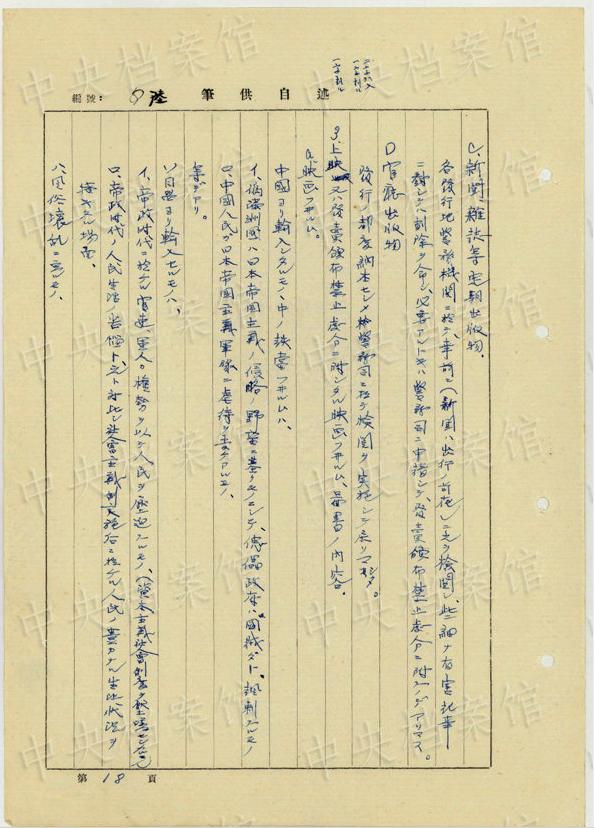 述自供筆
編號: 8 陸
C、新聞雜誌等定期出版物、
各發行地警務機關ニ於テ、事前ニ(新聞ハ出行ノ前夜)之ヲ檢閱シ、些細ナ有害記事
ニ對シテハ削除ヲ命シ、必要アルトキハ警務司ニ申請シテ、發賣頒布禁止處分ニ附スノデアリマス。
D 官廳出版物
發行ノ都度納本セシメ檢警務司ニ於テ檢閱ヲ実施シテ居リマシタ。
3、上映又ハ發賣頒布禁止處分ニ附シタル映画フヰルム、圖書ノ内容、
a 映画フヰルム。
中國ヨリ輸入シタルモノノ中ノ抗日フヰルムハ、
イ、偽滿洲國ハ日本帝國主義ノ侵略ノ野望ニ基クモノニシテ、傀儡政府ハ國賊ダト、諷刺スルモノ
ロ、中國人民ガ日本帝国主義軍隊ニ虐待ヲ受ケアルモノ、
等デアリ。
ソ同盟ヨリ輸入セルモノハ、
イ、帝政時代ニ於ケル官吏、軍人ノ權勢ヲ以テ人民ヲ壓迫スルモノ、
ロ、帝政時代ノ人民生活ノ苦惱ト、之ト對比シ社會主義制度施行後ニ於ケル人民ノ豊カナル生活狀況ヲ
描キタル場面、
ハ、風俗壞乱ニ亘ルモノ、
第 18 頁